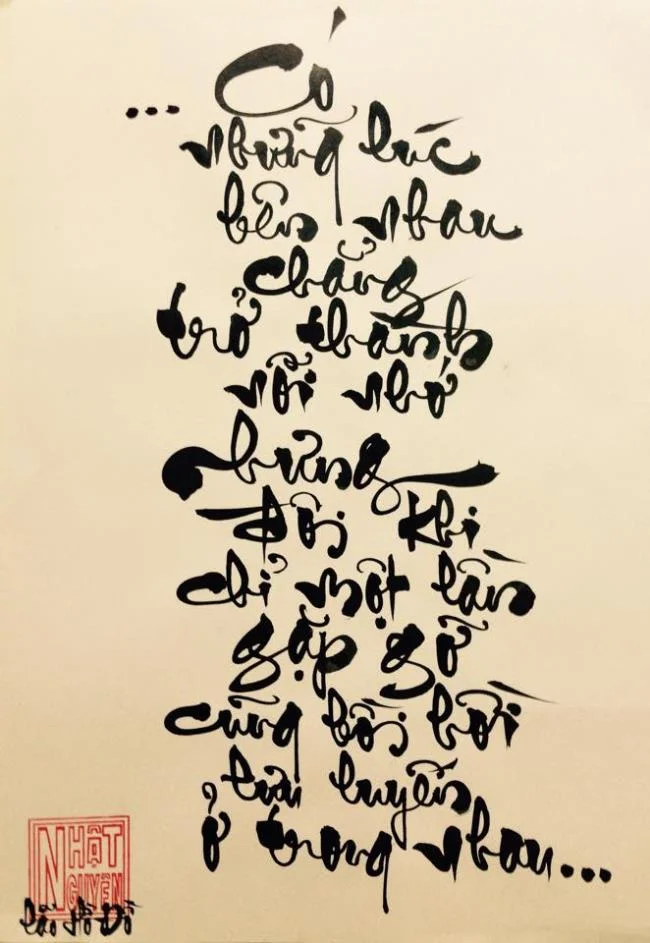 ... Có
những lúc
bên nhau
chẳng
trở thành
nỗi nhớ
nhưng
đôi khi
chỉ một lần
gặp gỡ
cũng bồi hồi
lưu luyến
ở trong nhau...
NHẬT
NGUYÊN